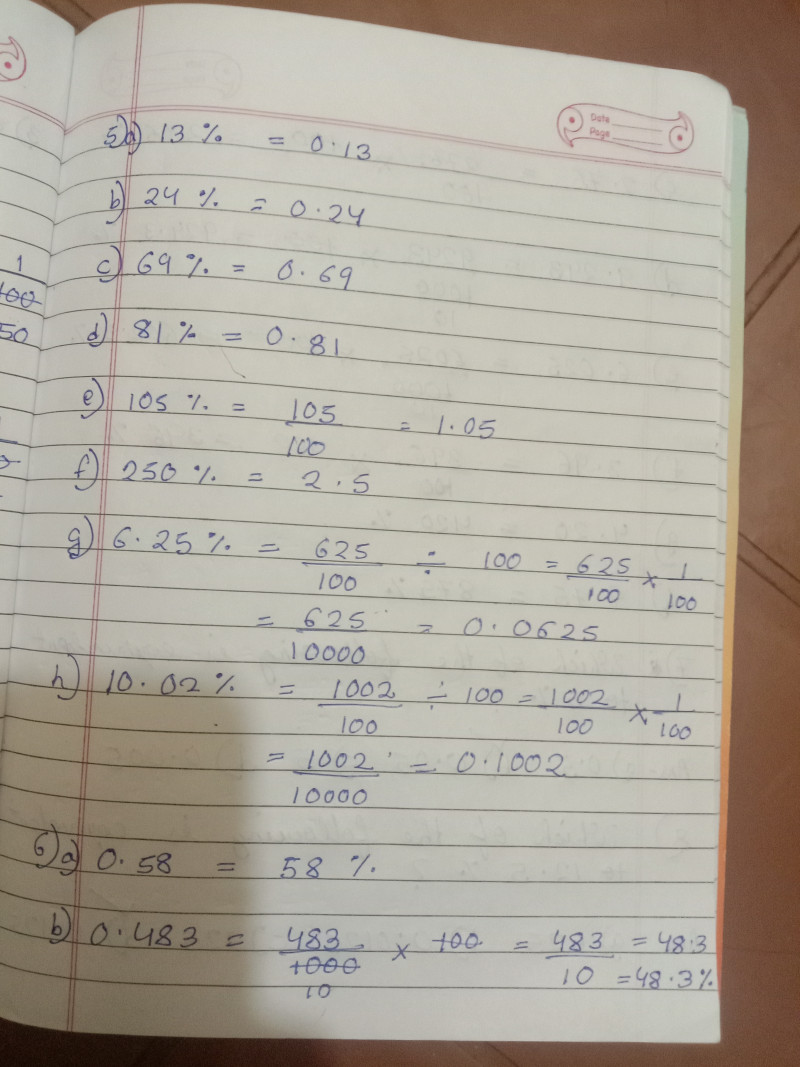 Date
Page
5)a) 13 % = 0.13
b) 24 % = 0.24
c) 69 % = 0.69
d) 81 % = 0.81
e) 105 % = 105/100 = 1.05
f) 250 % = 2.5
g) 6.25 % = 625/100 ÷ 100 = 625/100 × 1/100
= 625/10000 = 0.0625
h) 10.02 % = 1002/100 ÷ 100 = 1002/100 × 1/100
= 1002/10000 = 0.1002
6)a) 0.58 = 58 %
b) 0.483 = 483/1000 × 100 = 483/10 = 48.3
10 = 48.3 %
1
100
50